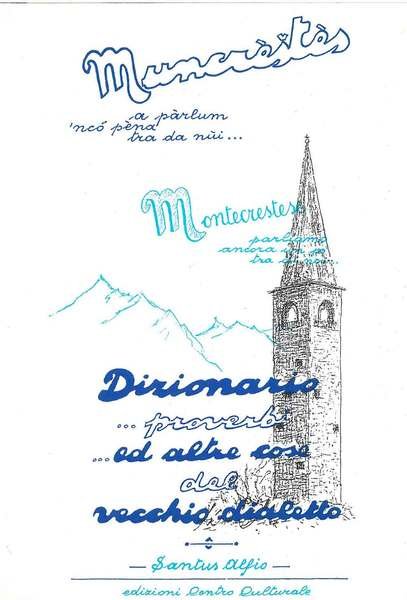 Muncràstàs
a pàrlum
'ncó pèna
tra da nùi...
Montecrestese
parliamo
ancora un po
tra di noi...
Dizionario
... proverbi
...ed altre cose
del
vecchio dialetto
— Santus Alfio —
edizioni Centro Culturale